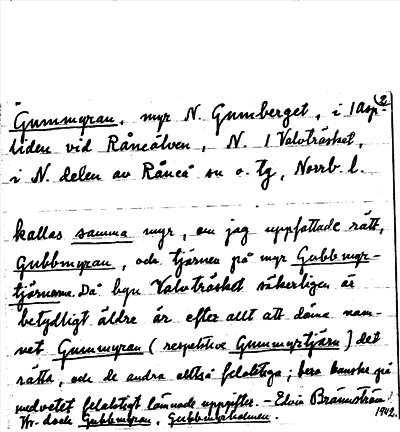 2
Gummyran, myr N. Gumberget, i 1 Asp-
liden vid Råneälven, N. 1 Valvträsket,
i N. delen av Råneå sn o. tg, Norrb. l.
kallas samma myr, om jag uppfattade rätt,
Gubbmyran, och tjärnen på myr Gubbmyr-
tjärnarna. Då byn Valvträsket säkerligen är
betydligt äldre är efter allt att döma nam-
net Gummyran (respektive Gummyrtjärn) det
rätta, och de andra alltså felaktiga; bero kanske på
medvetet felaktigt lämnade uppgifter. - Edvin Brännström
Jfr dock Gubbmyran, Gubbmyrholmen. 1942.